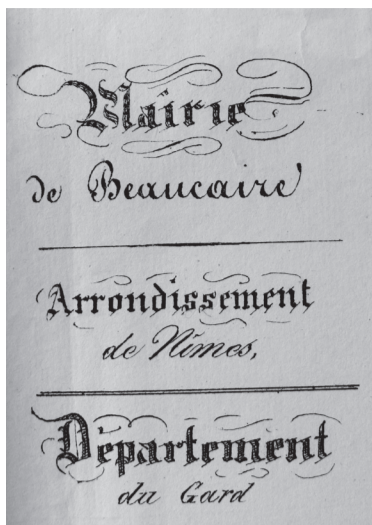 Mairie
de Beaucaire
Arrondissement
de Nîmes,
Département
du Gard